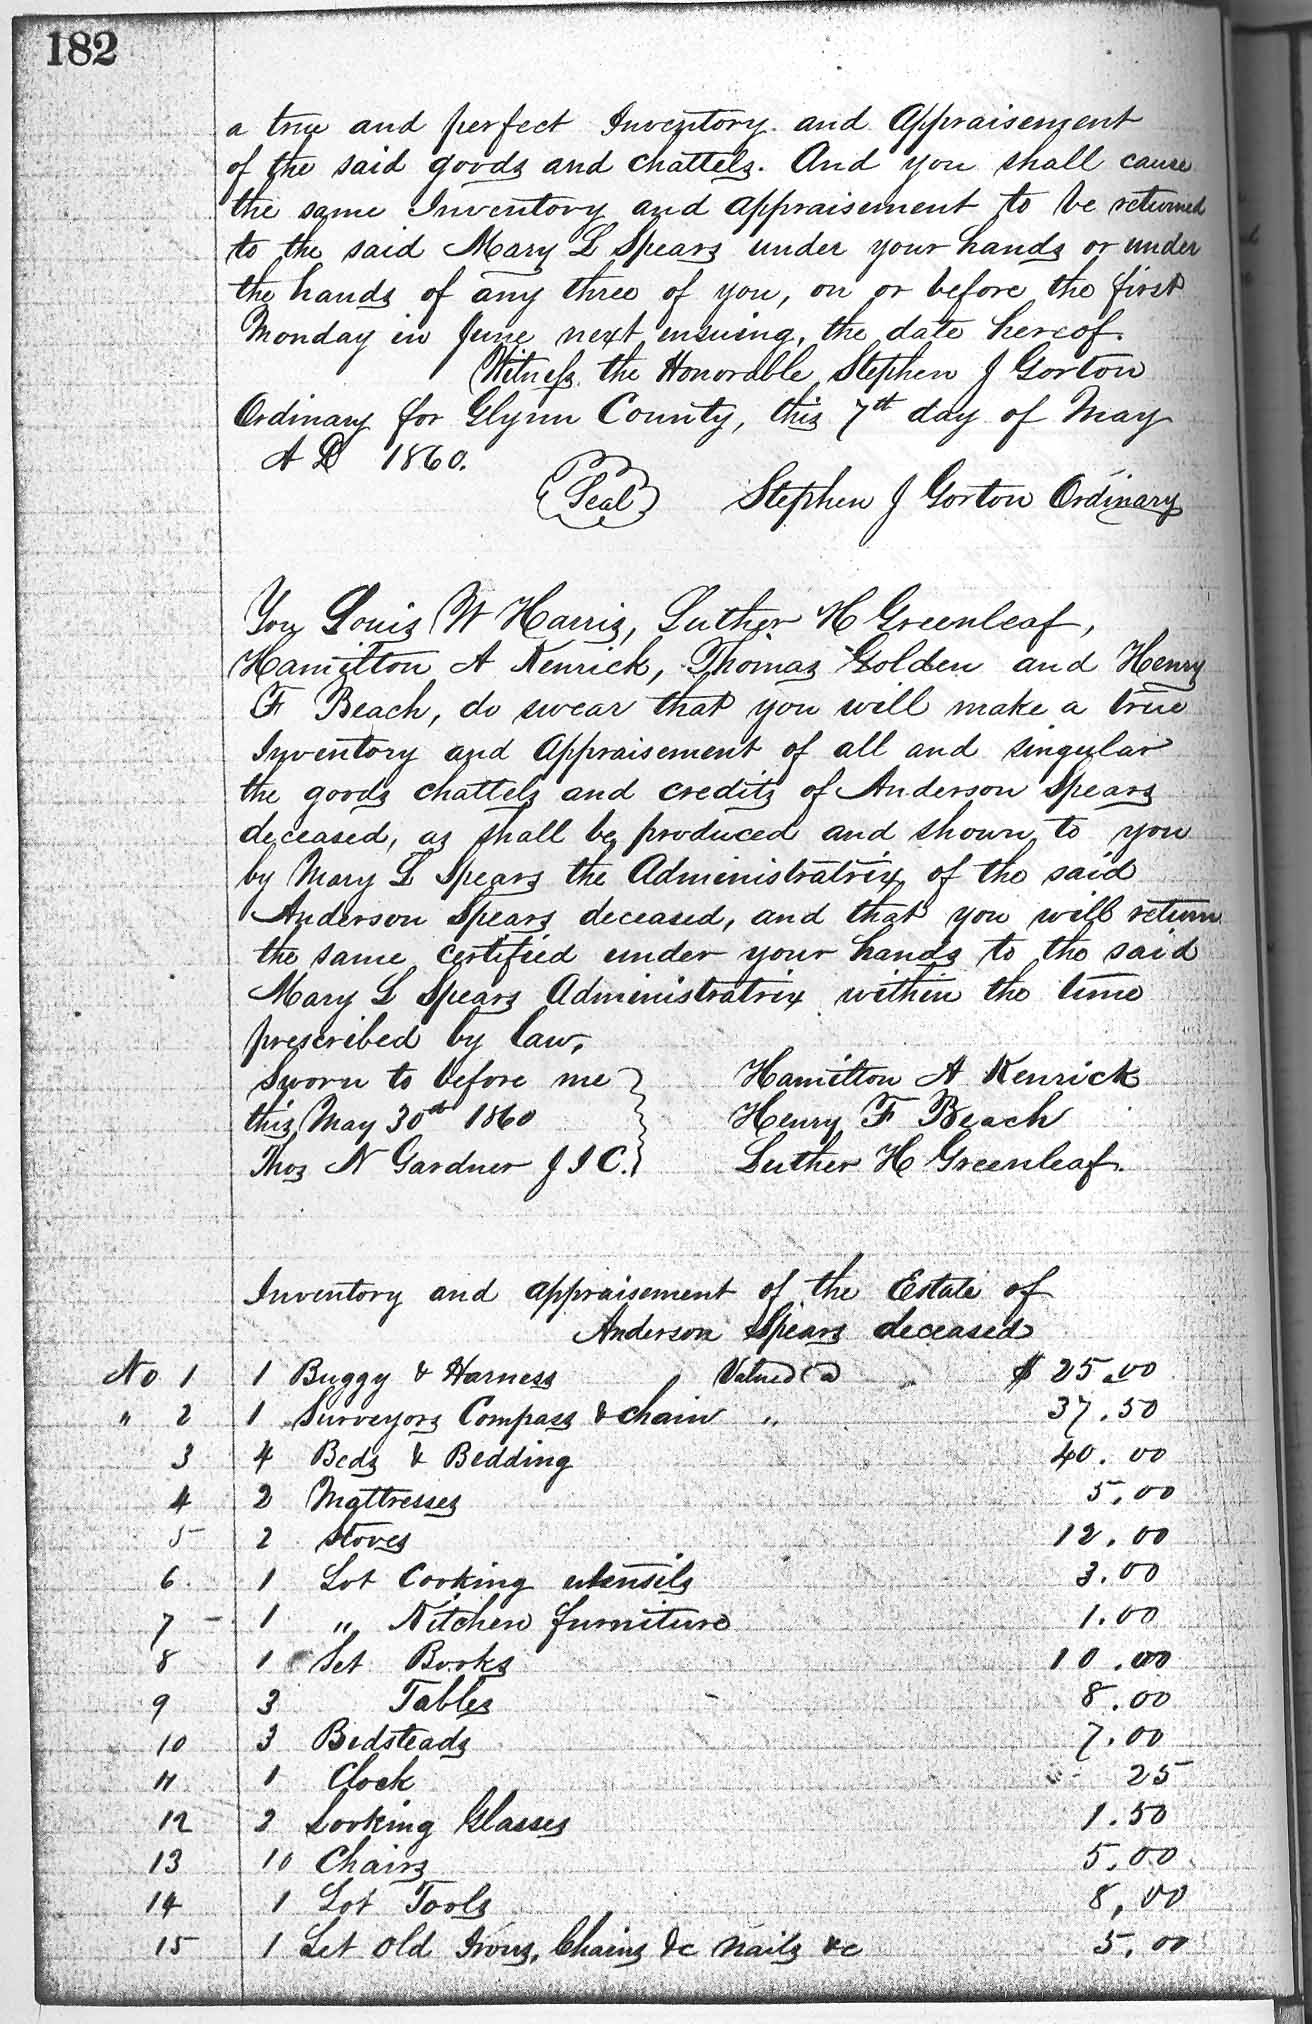 182
a true and perfect Inventory and Appraisement
of the said goods and chattels. And you shall cause
the same Inventory and appraisement to be returned
to the said Mary L Spears under your hands or under
the hands of any three of you, on or before the first
Monday in June next ensuing, the date hereof.
Witness the Honorable Stephen J Gorton
Ordinary for Glynn County, this 7th day of May
A D 1860.
Seal Stephen J Gorton Ordinary
You Louis W Harris, Luther H Greenleaf,
Hamilton A Kenrick, Thomas Golden and Henry
F Beach, do swear that you will make a true
Inventory and appraisement of all and singular
the goods chattels and credits of Anderson Spears
deceased, as shall be produced and shown to you
by Mary L Spears the Administratrix of the said
Anderson Spears deceased, and that you will return
the same certified under your hands to the said
Mary L Spears Administratrix within the time
prescribed by law.
Sworn to before me Hamilton A Kenrick
this May 30th 1860 Henry F Beach
Thos N Gardner J I C. Luther H Greenleaf.
Inventory and appraisement of the Estate of
Anderson Spears deceased
No 1 1 Buggy & Harness Valued @ $ 25.00
" 2 1 Surveyors Compass & chain " 37.50
3 4 Beds & Bedding 40.00
4 2 Mattresses 5.00
5 2 Stoves 12.00
6 1 Lot Cooking utensils 3.00
7 1 " Kitchen furniture 1.00
8 1 Set Books 10.00
9 3 Tables 8.00
10 3 Bedsteads 7.00
11 1 Clock 25
12 2 Looking Glasses 1.50
13 10 Chairs 5.00
14 1 Lot Tools 8,00
15 1 Let old Irons, Chains &c nails &c 5.00